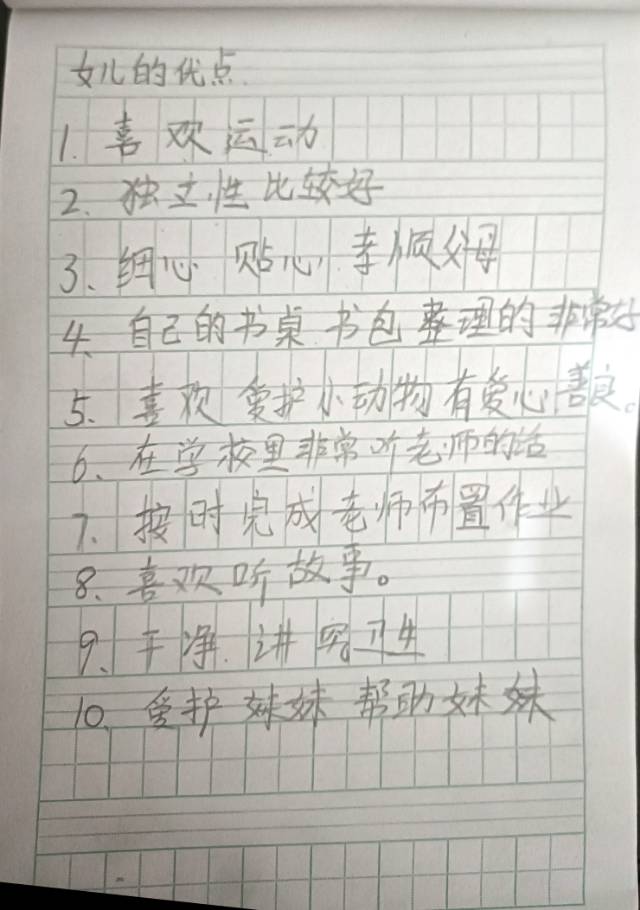 女儿的优点.
1. 喜欢运动
2. 独立性比较好
3、细心 贴心, 孝顺父母
4、自己的书桌 书包 整理的非常好
5、喜欢 爱护小动物有爱心,善良。
6、在学校里非常听老师的话
7、按时完成老师布置作业
8、喜欢听故事。
9、干净. 讲究卫生
10、爱护妹妹 帮助妹妹